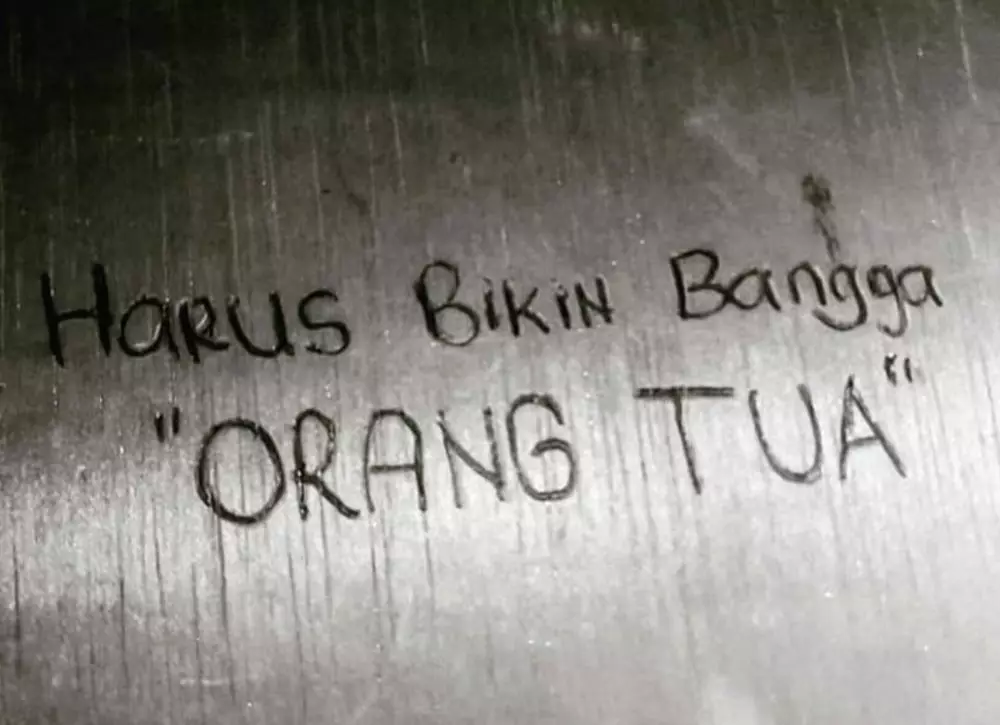 HARUS BIKIN Bangga
"ORANG TUA"